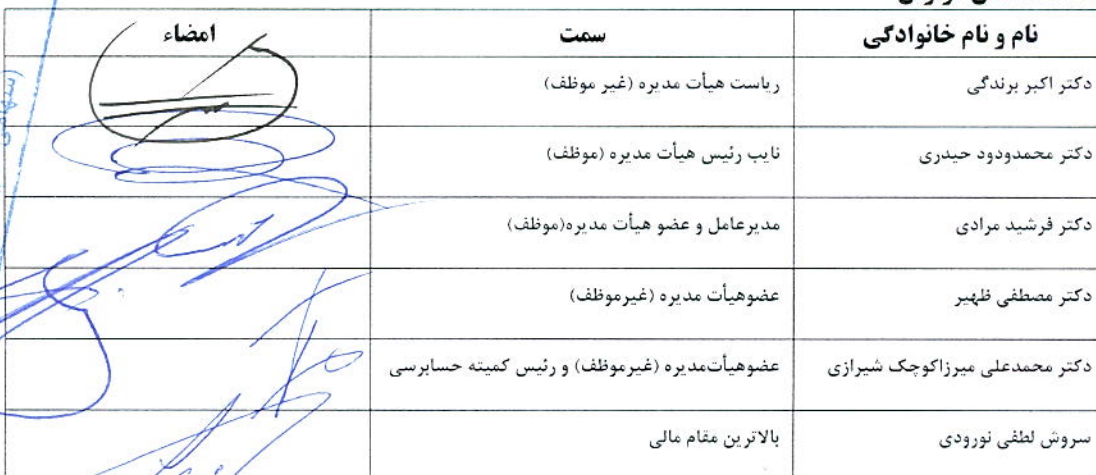 نام و نام خانوادگی سمت امضاء
دکتر اکبر برندگی ریاست هیأت مدیره (غیر موظف)
دکتر محمدودود حیدری نایب رئیس هیأت مدیره (موظف)
دکتر فرشید مرادی مدیرعامل و عضو هیأت مدیره(موظف)
دکتر مصطفی ظهیر عضوهیأت مدیره (غیرموظف)
دکتر محمدعلی میرزاکوچک شیرازی عضوهیأت‌مدیره (غیرموظف) و رئیس کمیته حسابرسی
سروش لطفی نورودی بالاترین مقام مالی